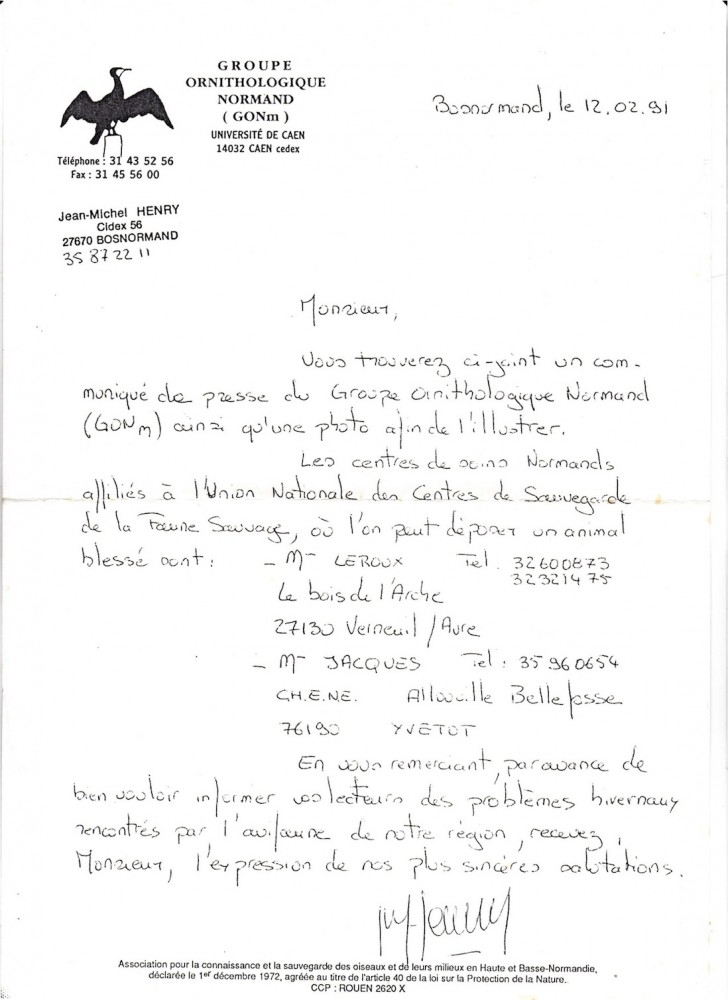 GROUPE
ORNITHOLOGIQUE
NORMAND
( GONm )
UNIVERSITÉ DE CAEN
14032 CAEN cedex
Téléphone : 31 43 52 56
Fax : 31 45 56 00
Jean-Michel HENRY
Cidex 56
27670 BOSNORMAND
35 87 22 11
Bosnormand, le 12.02.91
Monsieur,
Vous trouverez ci-joint un com-
muniqué de presse du Groupe Ornithologique Normand
(GONm) ainsi qu'une photo afin de l'illustrer.
Les centres de soins Normands
affiliés à l'Union Nationale des Centres de Sauvegarde
de la Faune Sauvage, où l'on peut déposer un animal
blessé sont : - Mr LEROUX Tel. 32600873
32321475
Le bois de l'Arche
27130 Verneuil / Avre
- Mr JACQUES Tel : 35 960654
C.H.E.N.E. Allouville Bellefosse
76190 YVETOT
En vous remerciant, par avance de
bien vouloir informer vos lecteurs des problèmes hivernaux
rencontrés par l'avifaune de notre région, recevez,
Monsieur, l'expression de nos plus sincères salutations.
Association pour la connaissance et la sauvegarde des oiseaux et de leurs milieux en Haute et Basse-Normandie,
déclarée le 1er décembre 1972, agréée au titre de l'article 40 de la loi sur la Protection de la Nature.
CCP : ROUEN 2620 X